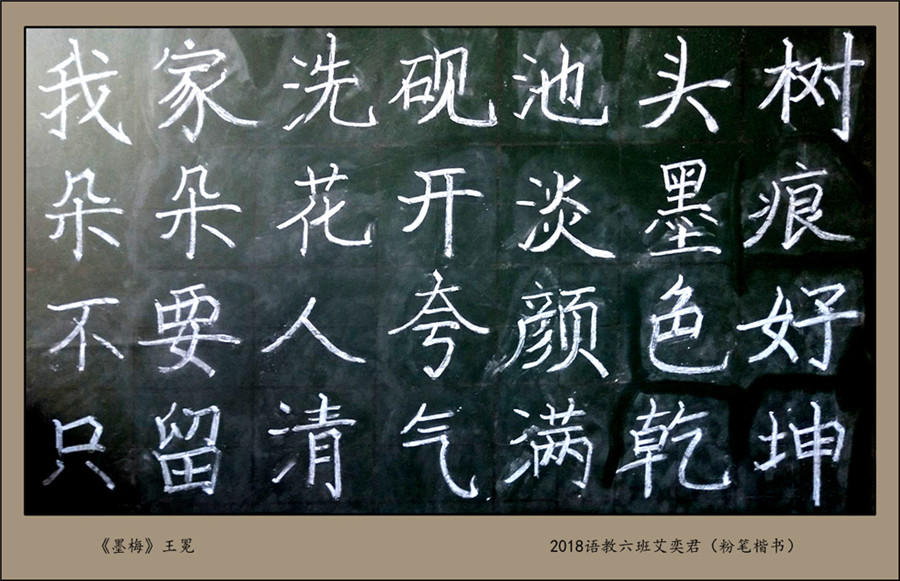 我家洗砚池头树
朵朵花开淡墨痕
不要人夸颜色好
只留清气满乾坤
《墨梅》王冕
2018语教六班艾奕君（粉笔楷书）